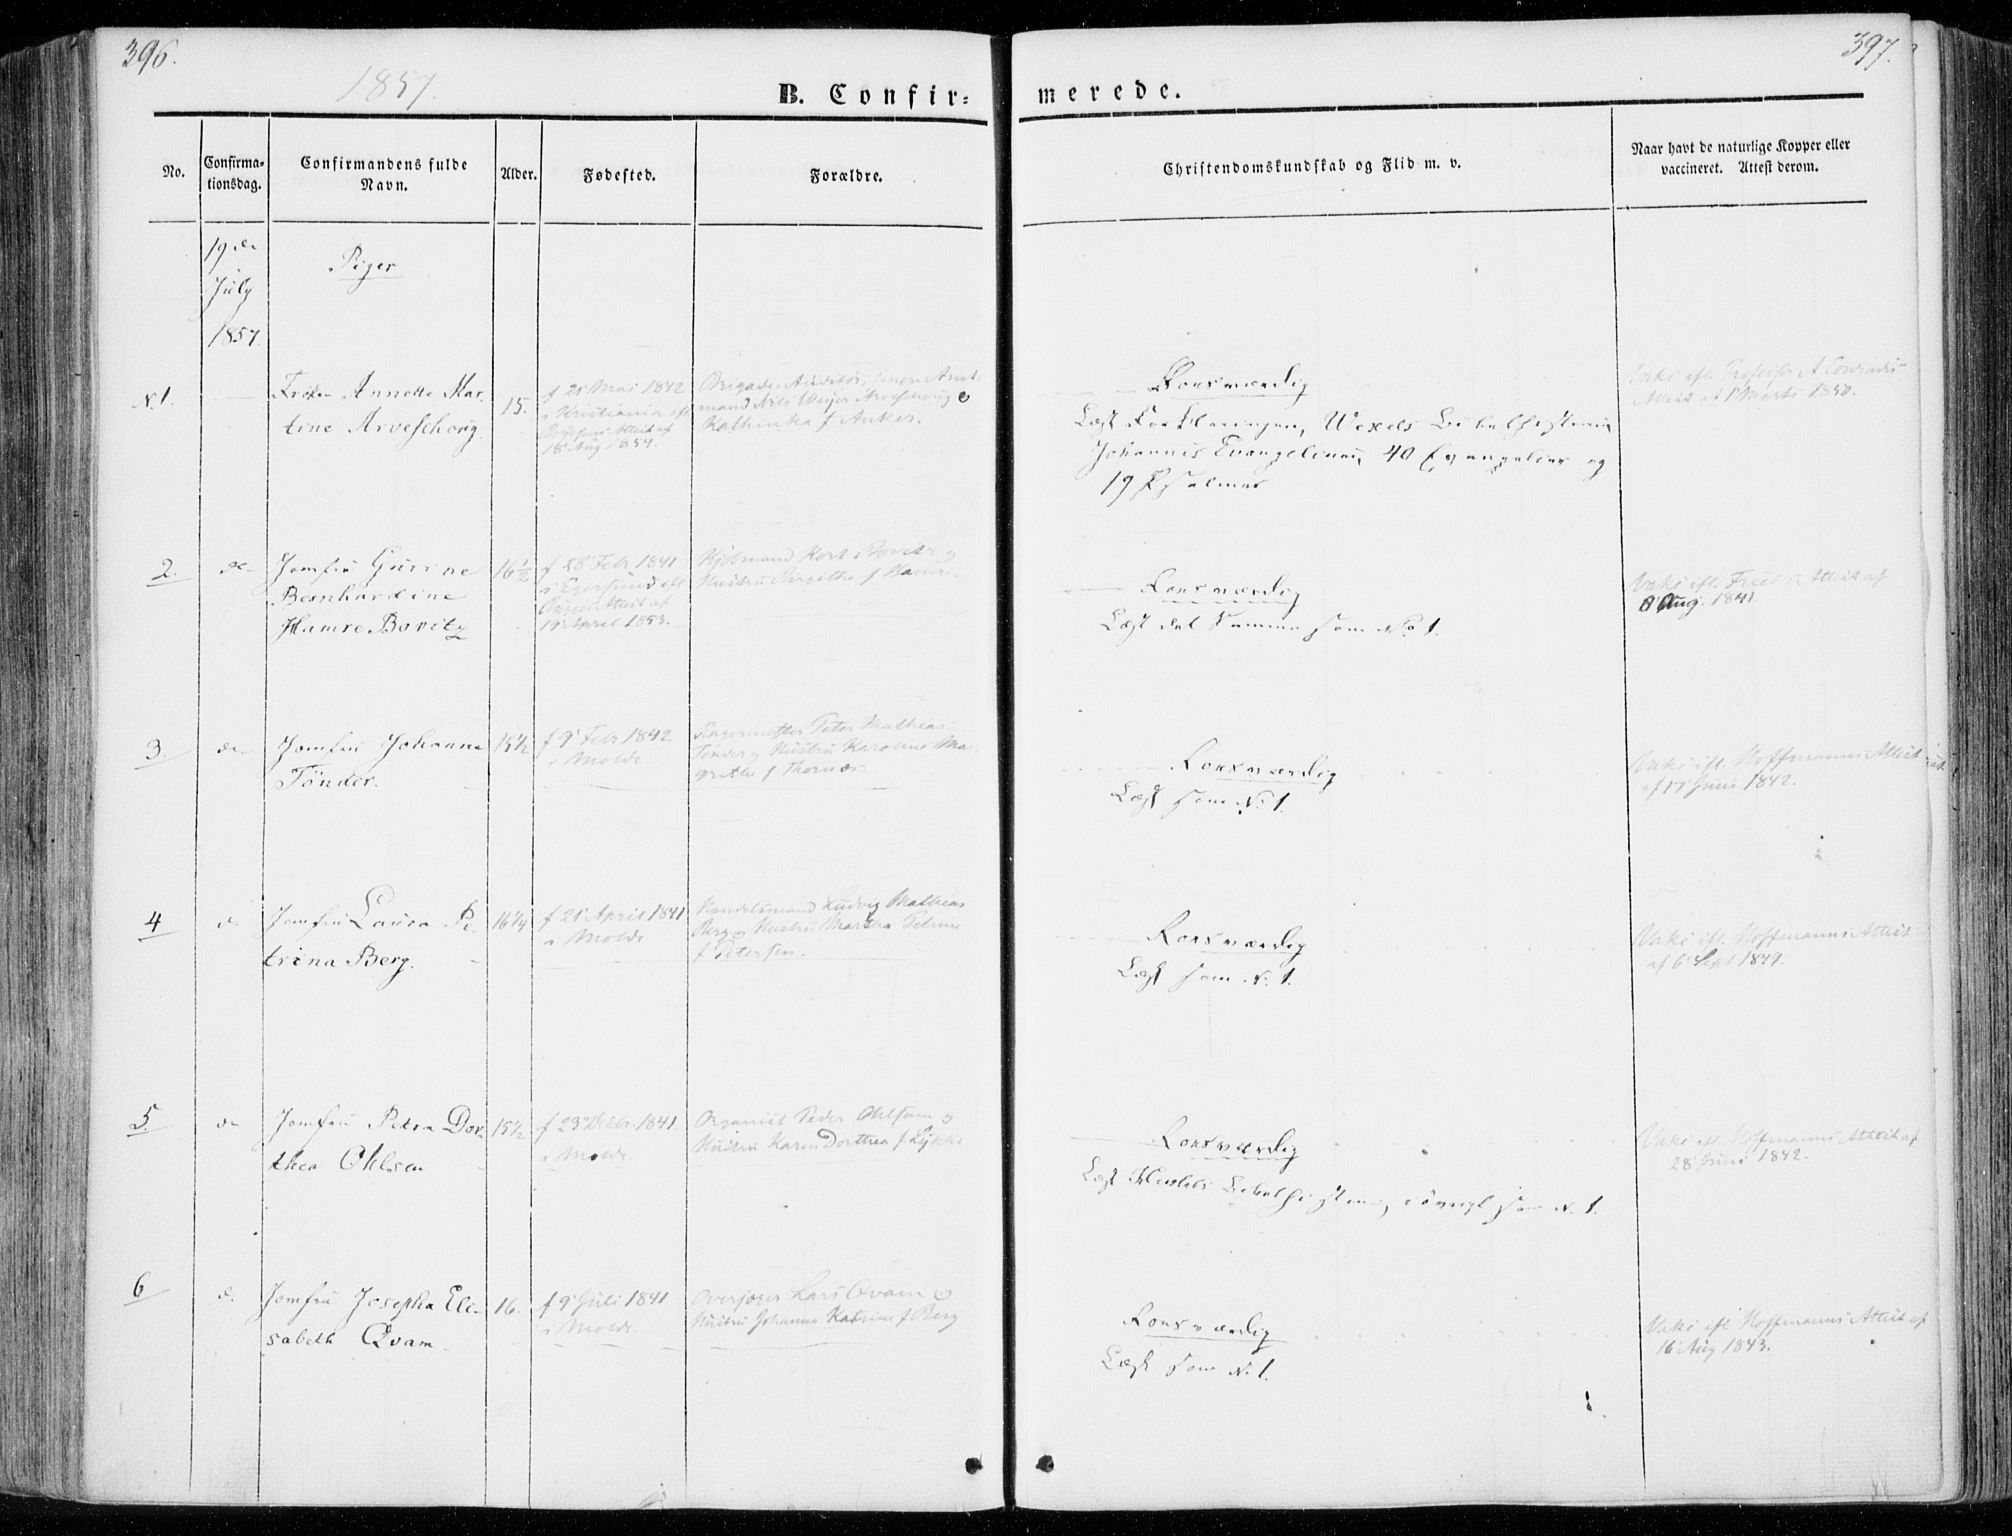 396.
397.
1857.
B. Confir= merede.
No.
Confirma-
tionsdag.
Confirmandens fulde
Navn.
Alder.
Fødested.
Forældre.
Christendomskundskab og Flid m. v.
Naar havt de naturlige Kopper eller
vaccineret. Attest derom.
19de
July
1857.
Piger
N. 1.
Frøken Annette Mar-
tine Arveschoug
15.
f 21 Mai 1842
i Kristiania efl
Attest af
18 Aug 1854.
Brigade Auditør, senere Amt-
mand Nils Weijer Arveschoug &
Kathinka f Anker.
Roesværdig
Læst Forklaringen, Wexels Bibelhistorie
Johannis Evangelium, 40 Evangelier og
19 Psalmer
Vaks. efl. Professor A Conradis
Attest af 1 Marts 1850.
2.
do
Jomfru Gurine
Bernhardine
Hamre Bovitz
16 1/2
f 28 Febr. 1841
i Egersund efl
Attest af
19 April 1853.
Kjøbmand Kort Bovitz og
Hustru Birgithe f Hamre
Roesværdig
Læst det Samme som No 1.
Vaks. efl. Attest af
8 Aug. 1841.
3.
do
Jomfru Johanne
Tønder.
15 1/2
f 9 Febr. 1842
i Molde
Peter Mathias
Tønder og Hustru Karoline Mar-
grethe f
Roesværdig
Læst som N. 1.
Vaks. efl. Hoffmanns Attest
af 17 Juni 1842.
4
do
Jomfru Laura Pe-
trina Berg.
16 1/4
f 21 April 1841
i Molde
Handelsmand Ludvig Mathias
Berg og Hustru Martha Petrine
f Petersen.
Roesværdig
Læst som N. 1.
Vaks. efl. Hoffmanns Attest
af 6 Sept 1849.
5.
do
Jomfru Petra Dor-
thea Ohlsen
15 1/2
f 23 Decbr. 1841
i Molde
Organist Peder Ohlsen og
Hustru Karen Dorthea f Lykke
Roesværdig
Læst Bibelhistorie, iøvrigt som N. 1.
Vaks. efl. Hoffmanns Attest af
28 Juni 1842.
6
do
Jomfru Josepha Eli-
sabeth Qvam
16.
f 9 Juli 1841
i Molde.
Overjæger Lars Qvam &
Hustru Johanna Katrine f Berg
Roesværdig
Læst som N. 1.
Vaks. efl Hoffmanns Attest af
16 Aug 1843.